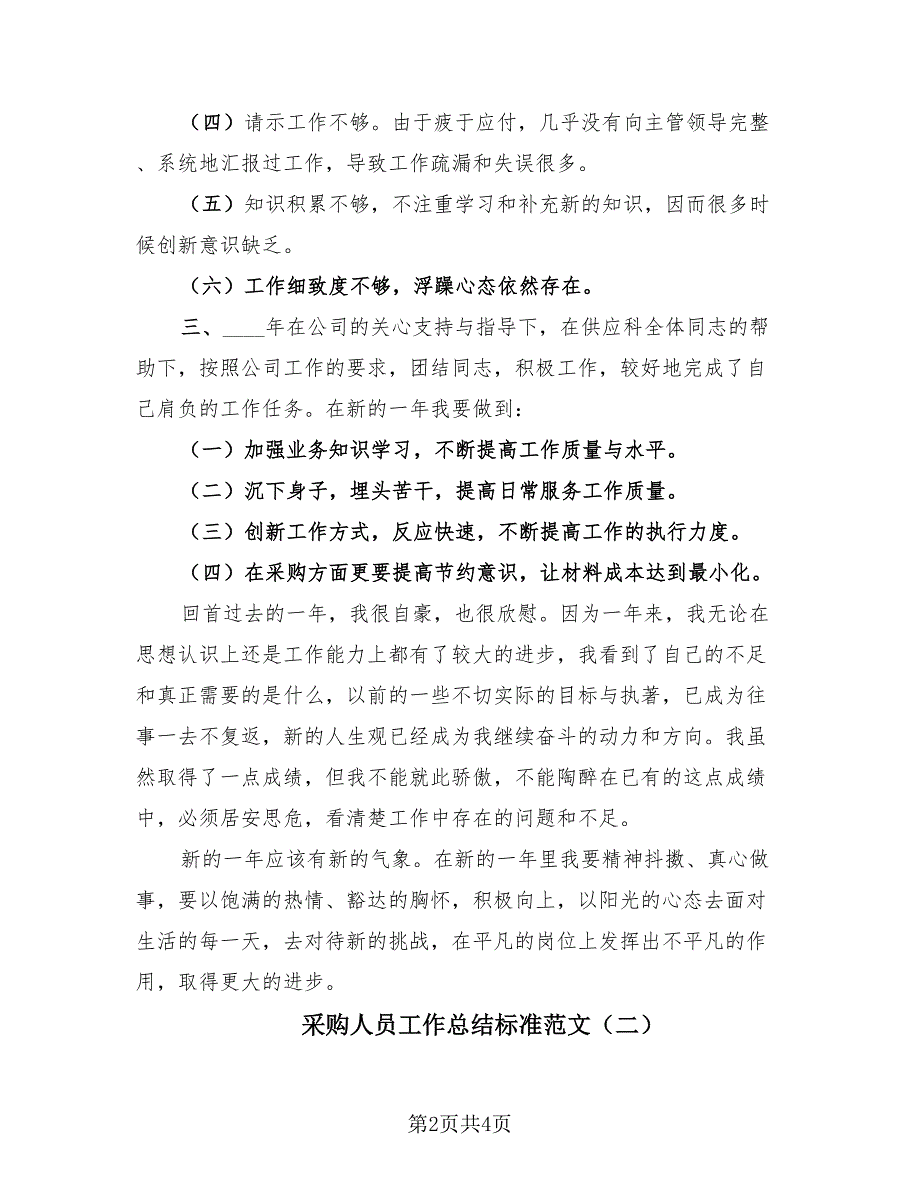 （四）请示工作不够。由于疲于应付，几乎没有向主管领导完整
、系统地汇报过工作，导致工作疏漏和失误很多。
（五）知识积累不够，不注重学习和补充新的知识，因而很多时
候创新意识缺乏。
（六）工作细致度不够，浮躁心态依然存在。
三、____年在公司的关心支持与指导下，在供应科全体同志的帮
助下，按照公司工作的要求，团结同志，积极工作，较好地完成了自
己肩负的工作任务。在新的一年我要做到：
（一）加强业务知识学习，不断提高工作质量与水平。
（二）沉下身子，埋头苦干，提高日常服务工作质量。
（三）创新工作方式，反应快速，不断提高工作的执行力度。
（四）在采购方面更要提高节约意识，让材料成本达到最小化。
回首过去的一年，我很自豪，也很欣慰。因为一年来，我无论在
思想认识上还是工作能力上都有了较大的进步，我看到了自己的不足
和真正需要的是什么，以前的一些不切实际的目标与执著，已成为往
事一去不复返，新的人生观已经成为我继续奋斗的动力和方向。我虽
然取得了一点成绩，但我不能就此骄傲，不能陶醉在已有的这点成绩
中，必须居安思危，看清楚工作中存在的问题和不足。
新的一年应该有新的气象。在新的一年里我要精神抖擞、真心做
事，要以饱满的热情、豁达的胸怀，积极向上，以阳光的心态去面对
生活的每一天，去对待新的挑战，在平凡的岗位上发挥出不平凡的作
用，取得更大的进步。
采购人员工作总结标准范文（二）
第2页共4页